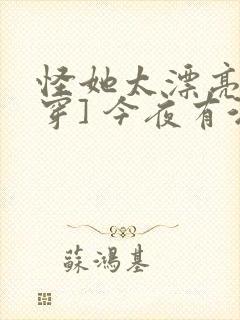 怪她太漂亮
穿]今夜有
蘇鴻基